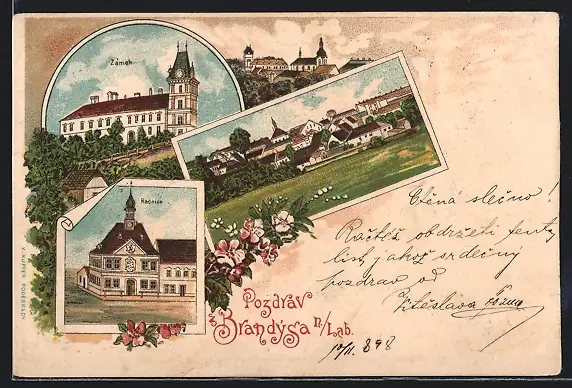 Zámek
Radnice
Pozdrav
z Brandýsa n/Lab.
Ctěná slečno!
Račtěž obdržeti tento
list jakož srdečný
pozdrav od
Vítěslava
10/11. 898